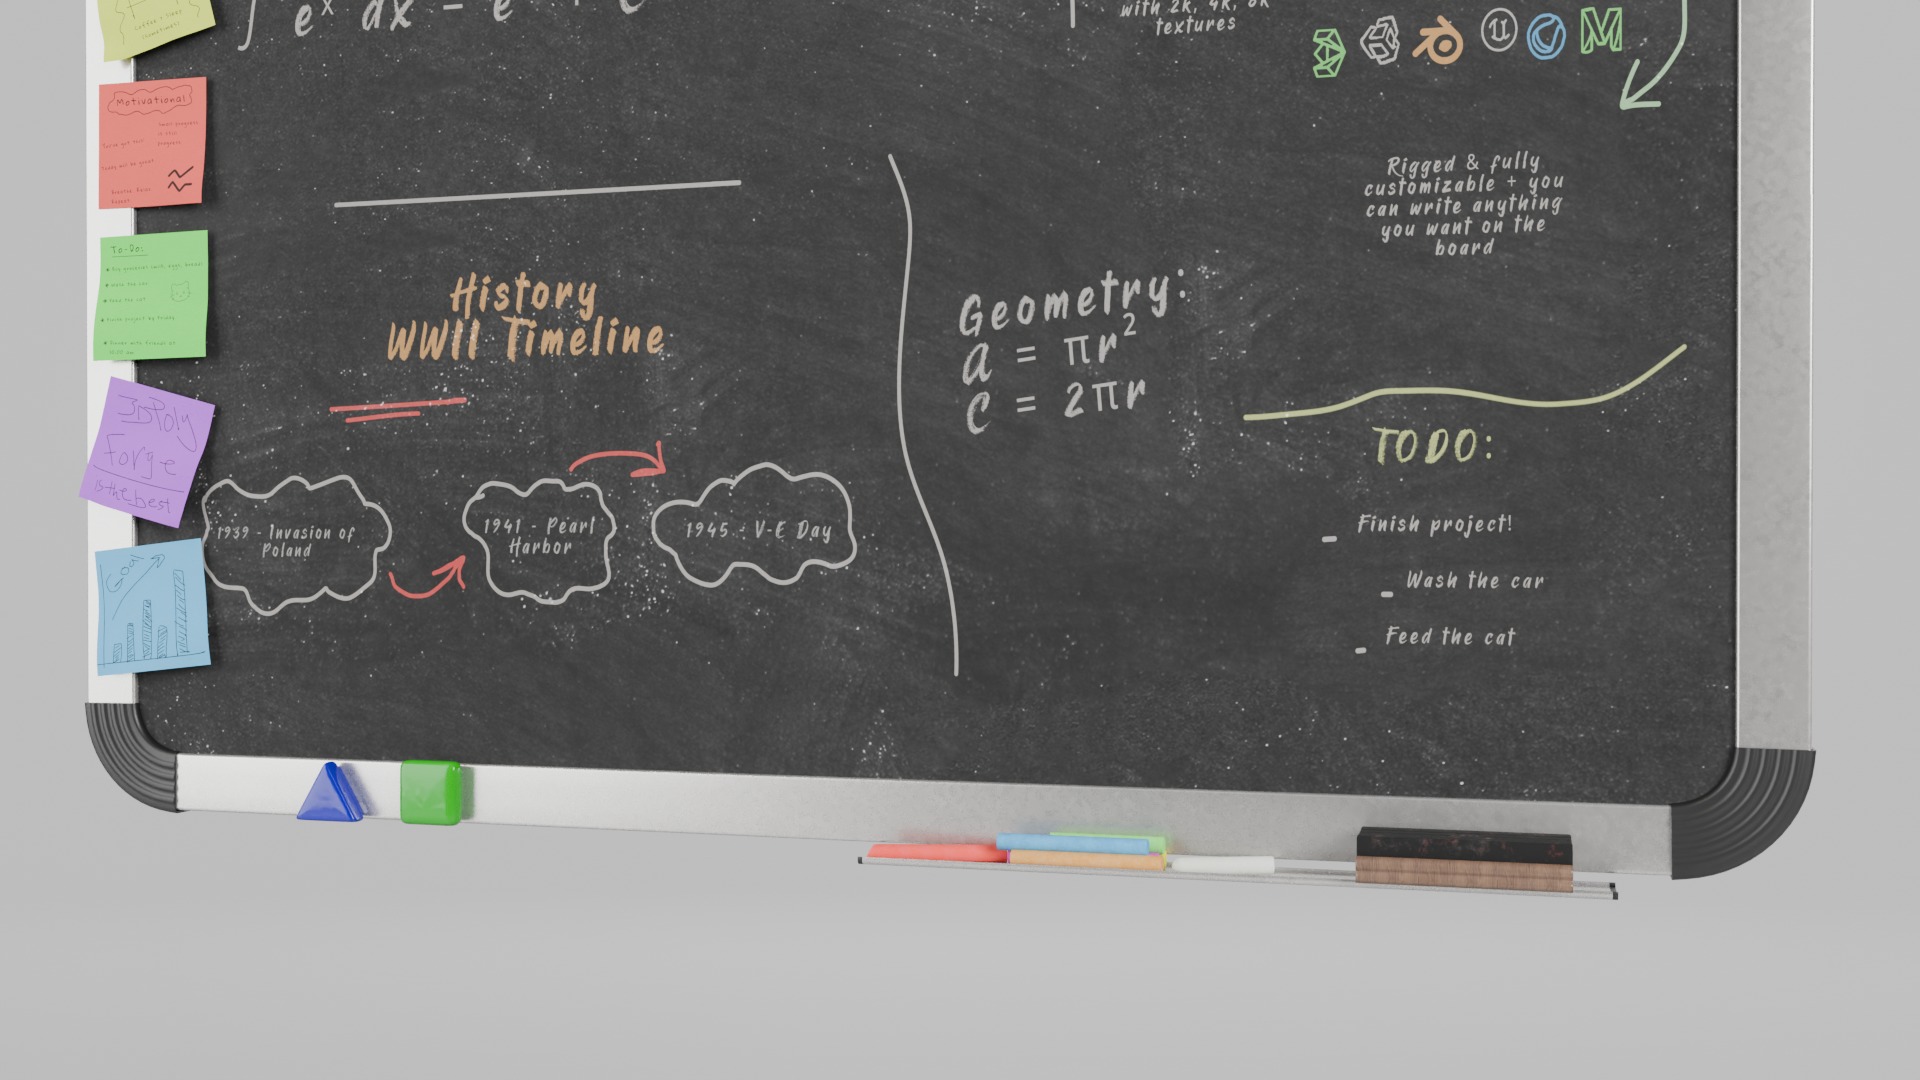 ∫ eˣ dx = e
with 2k, 4k, 8k
textures
Motivational
To-Do:
3DPoly
Forge
is the best
Goal
Rigged & fully
customizable + you
can write anything
you want on the
board
History
WWII Timeline
1939 - Invasion of
Poland
1941 - Pearl
Harbor
1945 : V-E Day
Geometry:
a = πr²
c = 2πr
TODO:
Finish project!
Wash the car
Feed the cat